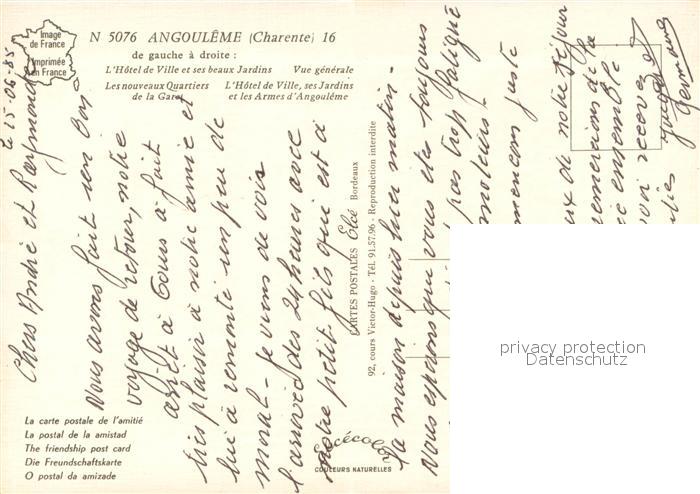 Image
de France
Imprimée
en France
N 5076 ANGOULÊME (Charente) 16
de gauche à droite :
L'Hôtel de Ville et ses beaux Jardins Vue générale
Les nouveaux Quartiers
de la Gare
L'Hôtel de Ville, ses Jardins
et les Armes d'Angoulême
le 25-06-85
Chers André et Raymonde
Nous avons fait un bon
voyage de retour, notre
arrêt à Tours à fait
très plaisir à notre amie et
lui à remonté un peu de
moral - Je viens de voir
l'arrivée des 24 heures avec
notre petit fils qui est à
la maison depuis hier matin -
Nous espérons que vous êtes toujours
pas trop fatigué
moteurs
mencons juste
de notre séjour
mercions de la
ensemble
recevez
CARTES POSTALES Elcé Bordeaux
92, cours Victor-Hugo - Tél. 91.57.96 - Reproduction interdite
La carte postale de l'amitié
La postal de la amistad
The friendship post card
Die Freundschaftskarte
O postal da amizade
Elcécolor
COULEURS NATURELLES
privacy protection
Datenschutz